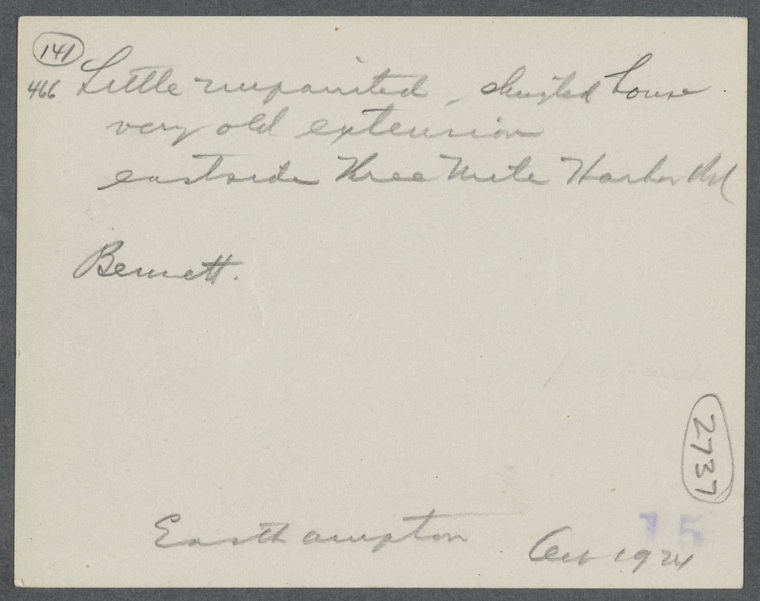 141
466 Little unpainted, shingled house
very old extension
eastside Three Mile Harbor Rd
Bennett.
2737
15
Easthampton Oct 1924